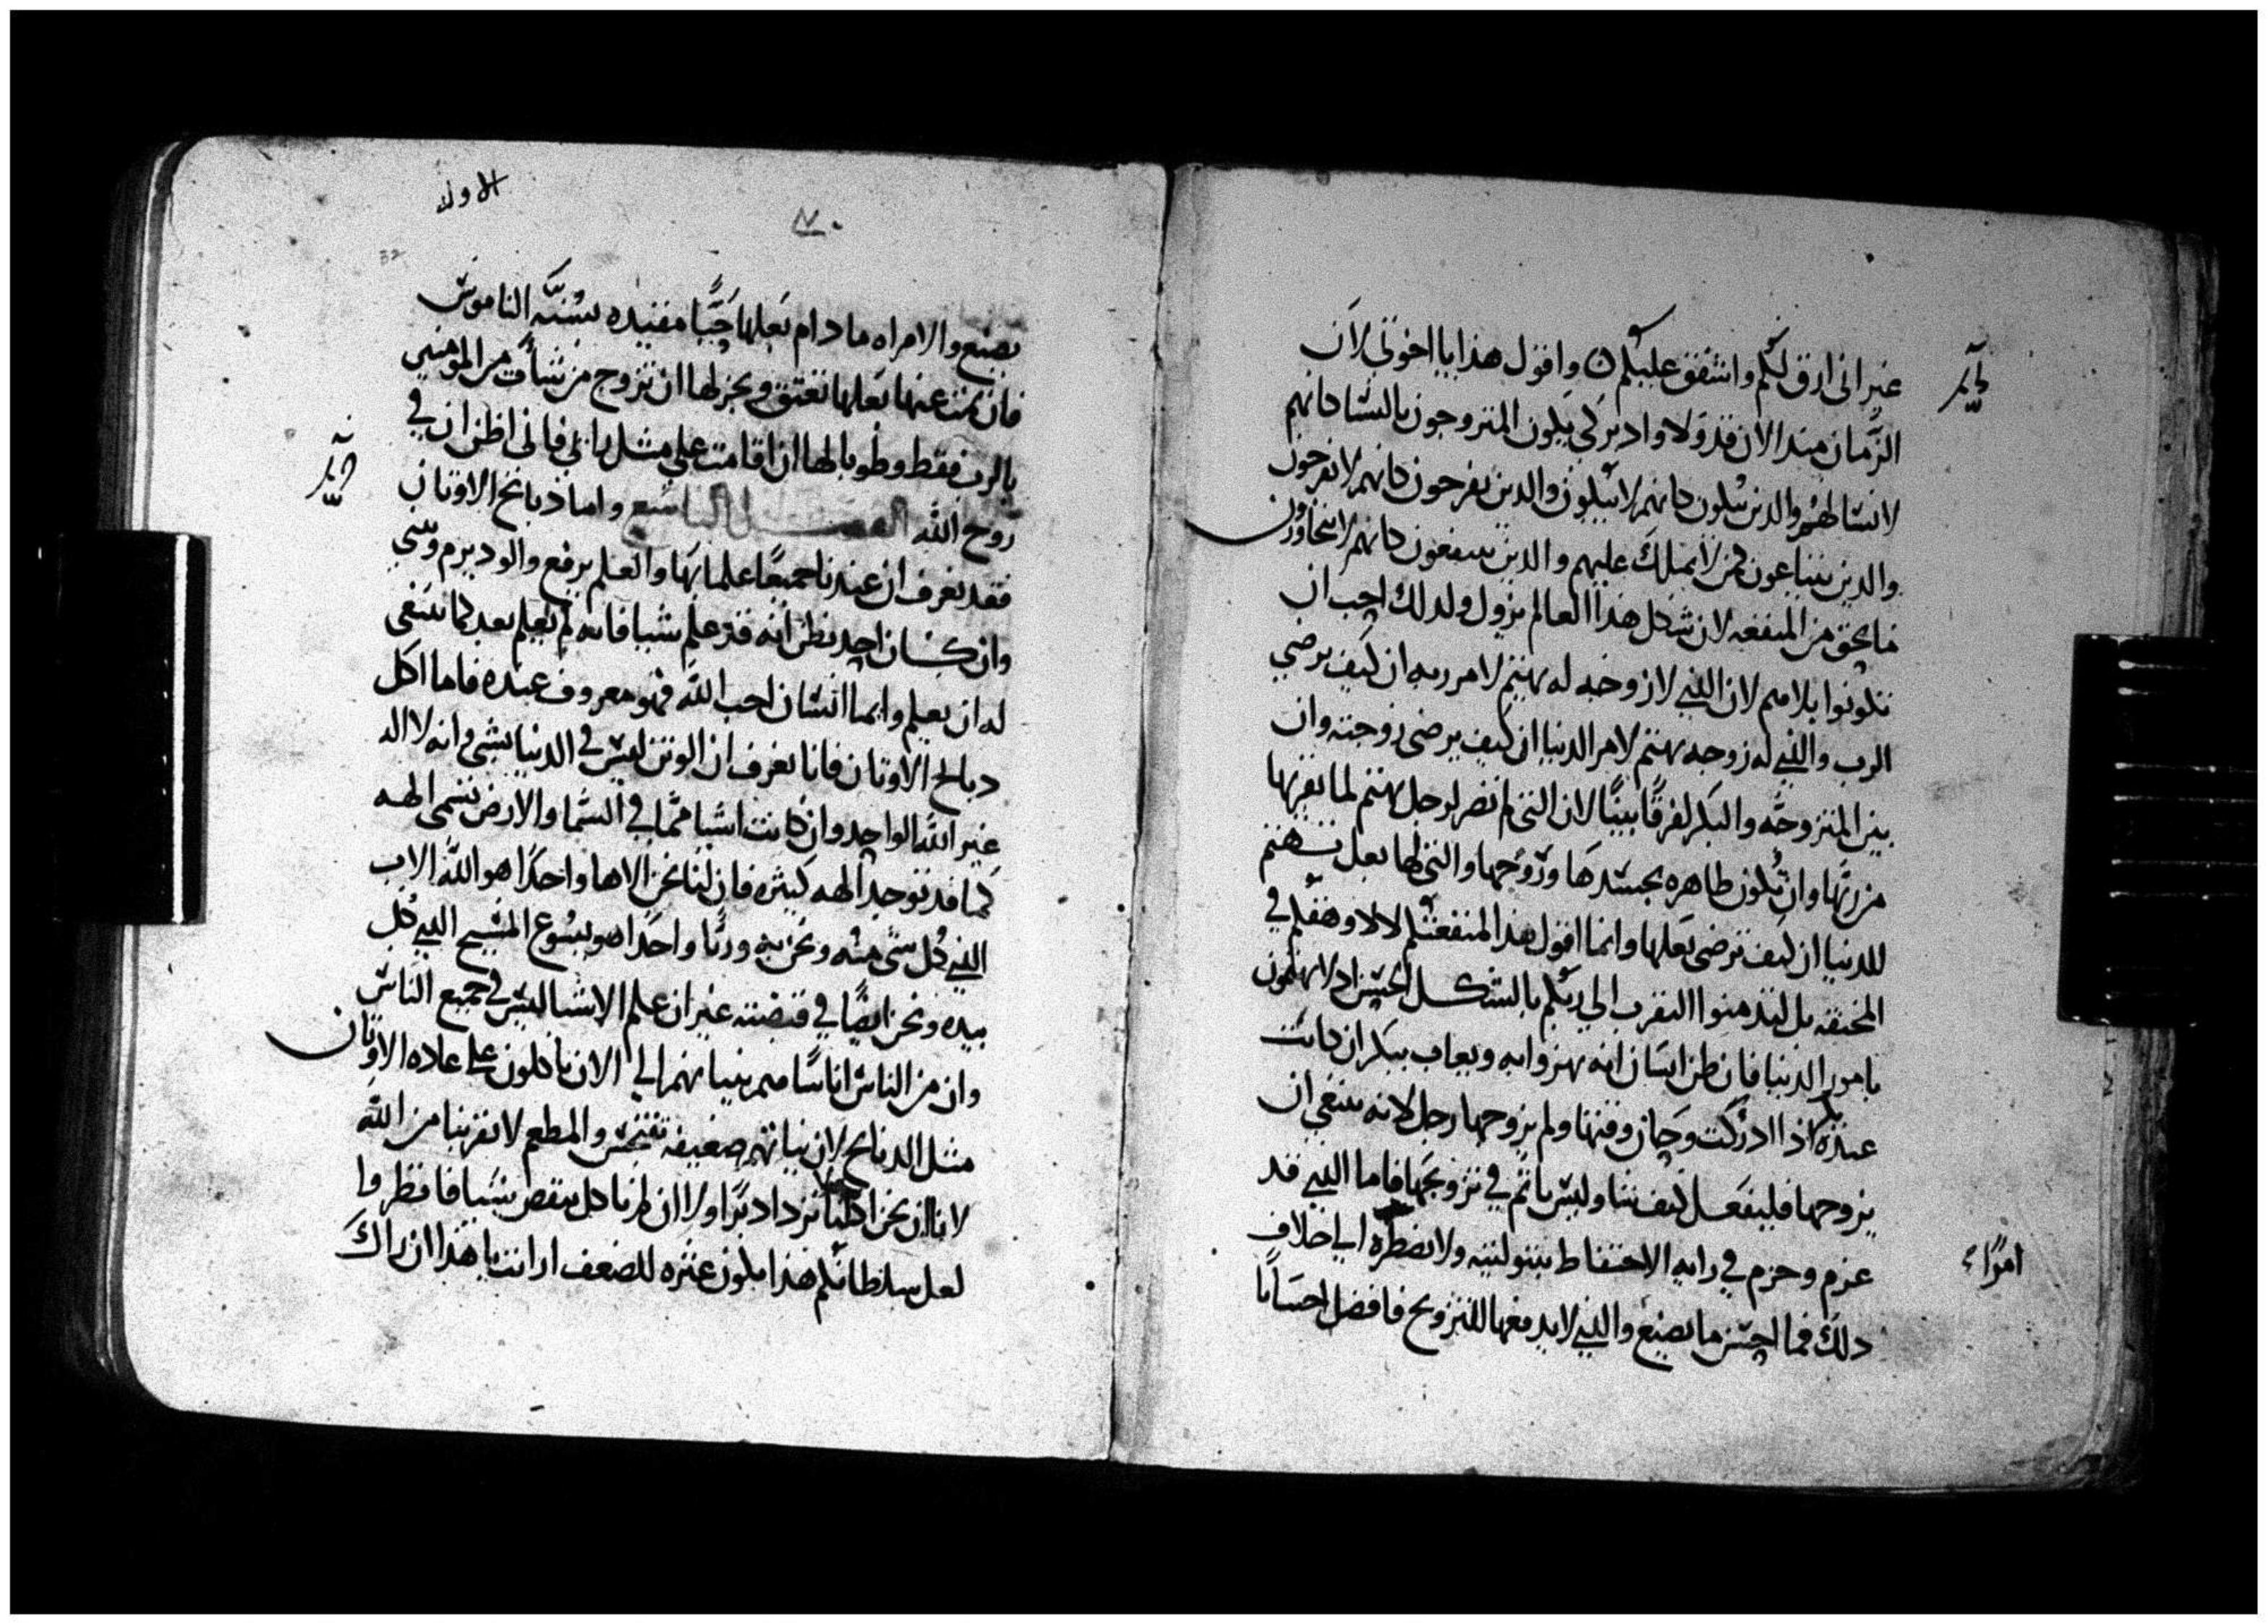 غير انى ارق لكم واشفق عليكم ۞ واقول هذا يا اخوتى لان
الزمان منذ الان قد ولا وادبر كى يكون المتزوجون بالنسا كانهم
لا نسا لهم والدين يبكون كانهم لا يبكون والدين يفرحون كانهم لا يفرحون
والدين يبتاعون كمن لا يملك عليهم والدين ينتفعون كانهم لا يتجاوزون
ما يحق من المنفعه لان شكل هذا العالم يزول ولدلك احب ان
تكونوا بلا هم لان الذي لا زوجه له يهتم لامر ربه ان كيف يرضي
الرب والذي له زوجه يهتم لامر الدنيا ان كيف يرضى زوجته وان
بين المتزوجه والبكر لفرقًا بينًا لان التى لم تصر لرجل تهتم لما يقربها
من ربها وان تكون طاهره بجسدها وروحها والتى لها بعل تهتم
للدنيا ان كيف ترضى بعلها وانما اقول هذا لمنفعتكم لا لاوهقكم في
المخنقه بل لتدمنوا التقرب الى ربكم بالشكل الحسن اد لا تهتمون
بامور الدنيا فان ظن انسان انه يهزوا به ويعاب ببكر ان كانت
عنده اذا ادركت وجاز وقتها ولم يزوجها رجل لانه ينبغي ان
يزوجها فليفعل كيف شا وليس ياثم في تزويجها فاما الذي قد
عزم وحزم في رايه الاحتفاظ ببتوليته ولا يضطره الي خلاف
امرًا
دلك فما احسن ما يصنع والذي لا يدفعها للتزويج فافضل احسانا
الاوله
٧٠
32
يصنع والامراه ما دام بعلها حيًّا مقيده بسنّه الناموس
فان مت عنها بعلها تعتق ويجز لها ان تزوج من شات من المومنين
بالرب فقط وطوبا لها ان اقامت على مثل رايي فانى اظن ان في
روح الله الفصل التاسع واما دبايح الاوتان
فقد نعرف ان عندنا جميعًا علما بها والعلم يرفع والود يرم وسي
وان كان احد يظن انه قد علم شيا فانه لم يعلم بعد كما ينبغى
له ان يعلم وايما انسان احب الله فهو معروف عنده فاما اكل
دبايح الاوتان فانا نعرف ان الوتن ليس في الدنيا بشي وانه لا اله
غير الله الواحد وان كانت اشيا مما في السما والارض تسمى الهه
كما قد توجد الهه كثيره فان لنا نحن الاها واحدًا هو الله الاب
الذي كل شى منه ونحن به وربًا واحدًا هو يسوع المسيح الذي كل
بيده ونحن ايضًا في قبضته غير ان علم الاشيا ليس في جميع الناس
وان من الناس اناسًا بنياتهم الى الان ياكلون على عاده الاوتان
مثل الدبايح لان نياتهم ضعيفه تتنجس والمطعم لا يقربنا من الله
لانا ان نحن اكلنا نزداد برًا ولا ان لم ناكل ينقص شيا فانظروا
لعل سلطانكم هذا يكون عثره للضعف ا اراانت يا هذا ان راك